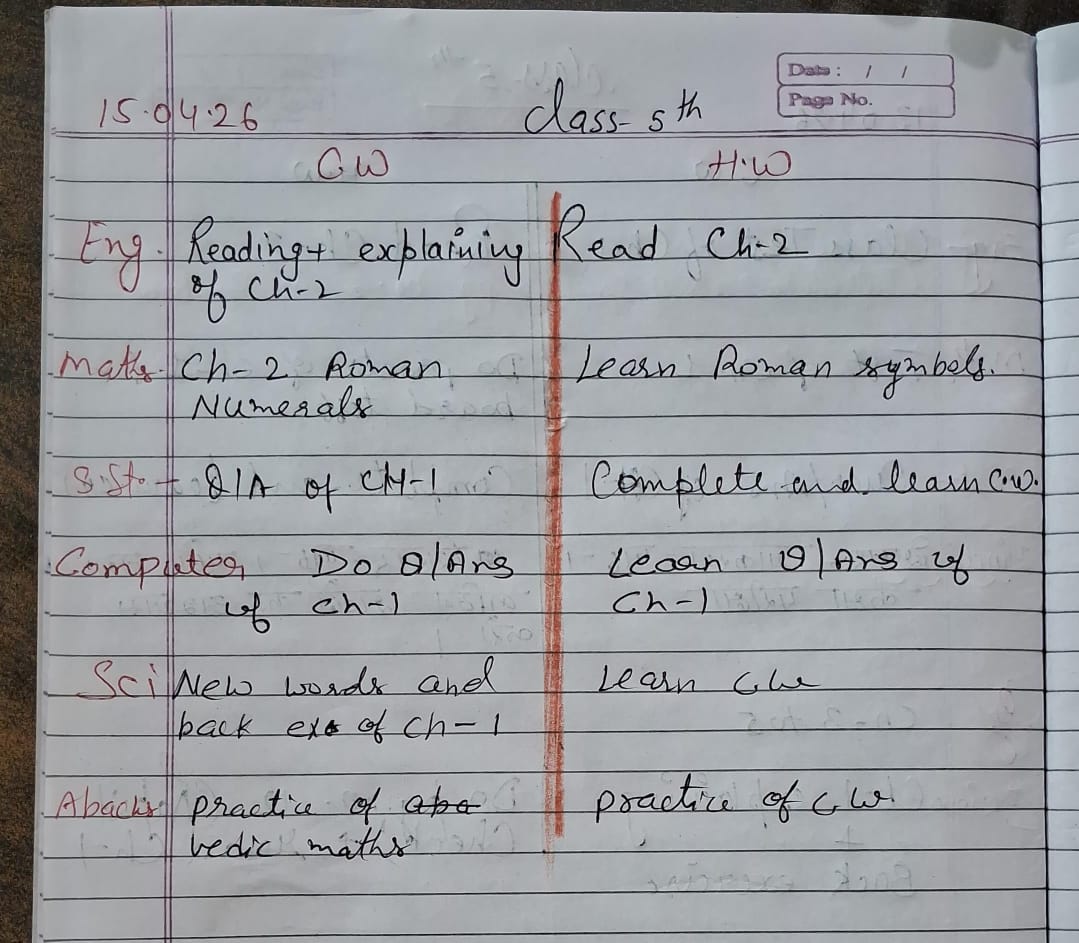 Date : / /
Page No.
15.04.26 Class- 5th
C.W H.W
Eng. Reading + explaining Read Ch-2
of Ch-2
Maths. Ch-2 Roman Learn Roman symbols.
Numerals
S.St. - Q/A of CH-1 Complete and learn C.w.
Computer Do Q/Ans Learn Q/Ans of
of ch-1 Ch-1
Sci New words and Learn C.W
back exs of ch-1
Abacus practice of aba practice of C.W.
vedic maths